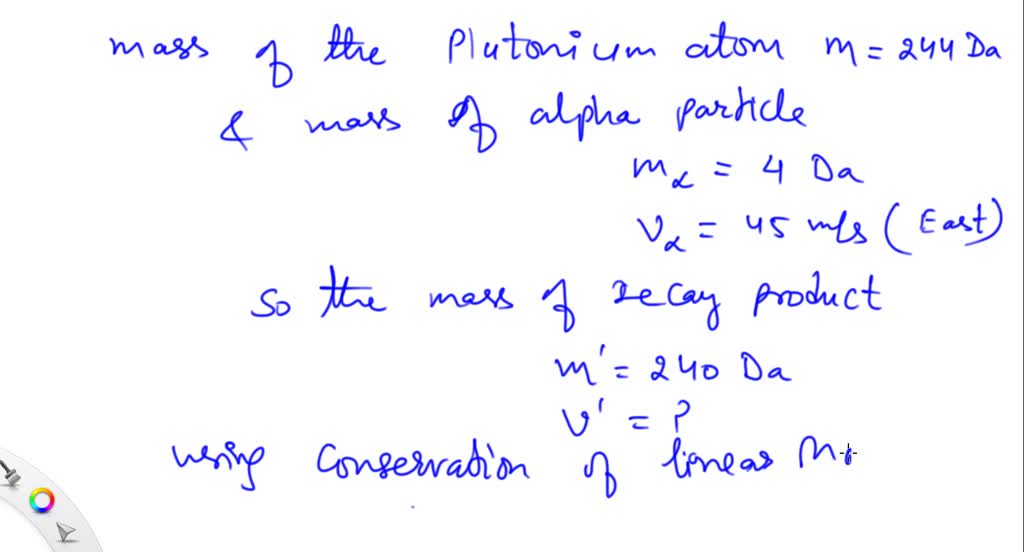 mass of the Plutonium atom m = 244 Da
& mass of alpha particle
mα = 4 Da
vα = 45 m/s (East)
so the mass of decay product
m' = 240 Da
v' = ?
using conservation of linear M